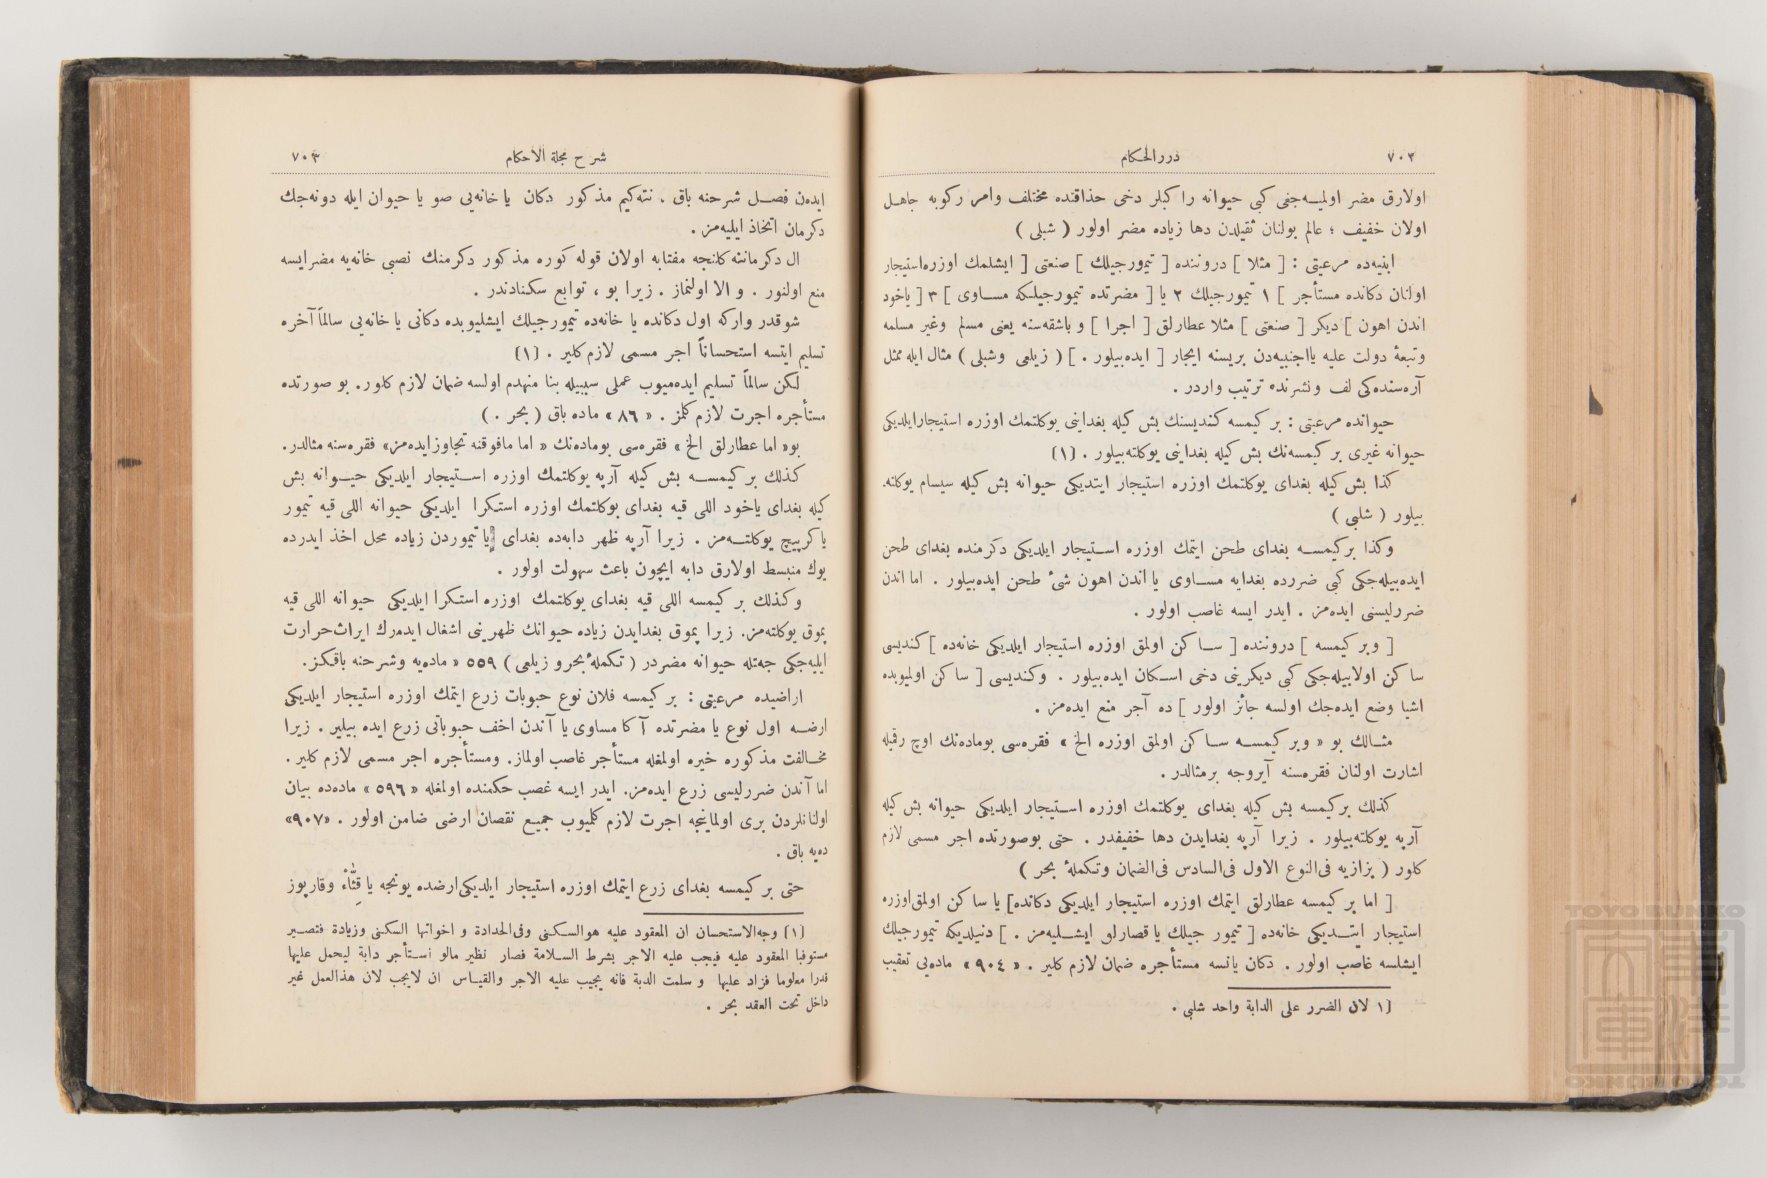 ٧٠٢
دررالحكام
اولارق مضر اولميه‌جغى كبى حيوانه را كبلر دخى حذاقتده مختلف وامر ركوبه جاهل
اولان خفيف ؛ عالم بولنان ثقيلدن دها زياده مضر اولور ( شبلى )
ابنيه‌ده مرعيتى : [ مثلا ] دروننده [ تيمورجيلك ] صنعتى [ ايشلمك اوزره استيجار
اولنان دكانده مستأجر ] ١ تيمورجيلك ٢ يا [ مضرتده تيمورجيلكه مساوى ] ٣ [ ياخود
اندن اهون ] ديكر [ صنعتى ] مثلا عطارلق [ اجرا ] و باشقه‌سنه يعنى مسلم وغير مسلمه
وتبعهٔ دولت عليه يااجنبيه‌دن بريسنه ايجار [ ايده‌بيلور . ] ( زيلعى وشبلى ) مثال ايله ممثل
آره‌سنده‌كى لف ونشرنده ترتيب واردر .
حيوانده مرعيتى : بر كيمسه كنديسنك بش كيله بغداينى يوكلتمك اوزره استيجارايلديكى
حيوانه غيرى بر كيمسه‌نك بش كيله بغداينى يوكلته‌بيلور . (١)
كذا بش كيله بغداى يوكلتمك اوزره استيجار ايتديكى حيوانه بش كيله سيسام يوكلته‌
بيلور ( شلبى )
وكذا بركيمسه بغداى طحن ايتمك اوزره استيجار ايلديكى دكرمنده بغداى طحن
ايده‌بيله‌جكى كبى ضررده بغدايه مساوى يا اندن اهون شئ طحن ايده‌بيلور . اما اندن
ضررليسنى ايده‌مز . ايدر ايسه غاصب اولور .
[ وبر كيمسه ] دروننده [ ساكن اولمق اوزره استيجار ايلديكى خانه‌ده ] كنديسى
ساكن اولابيله‌جكى كبى ديكرينى دخى اسكان ايده‌بيلور . وكنديسى [ ساكن اوليوبده
اشيا وضع ايده‌جك اولسه جائز اولور ] ده آجر منع ايده‌مز .
مثالك بو « وبر كيمسه ساكن اولمق اوزره الخ » فقره‌سى بوماده‌نك اوچ رقميله
اشارت اولنان فقره‌سنه آيروجه برمثالدر .
كذلك بركيمسه بش كيله بغداى يوكلتمك اوزره استيجار ايلديكى حيوانه بش كيله
آرپه يوكلته‌بيلور . زيرا آرپه بغدايدن دها خفيفدر . حتى بوصورتده اجر مسمى لازم
كلور ( بزازيه فى‌النوع الاول فى‌السادس فى‌الضمان وتكملهٔ بحر )
[ اما بر كيمسه عطارلق ايتمك اوزره استيجار ايلديكى دكانده] يا ساكن اولمق‌اوزره
استيجار ايتديكى خانه‌ده [ تيمور جيلك يا قصارلق ايشليه‌مز . ] دنيلديكه تيمورجيلك
ايشلسه غاصب اولور . دكان يانسه مستأجره ضمان لازم كلير . « ٩٠٤ » ماده‌يى تعقيب
(١ لان الضرر على الدابة واحد شلبى .
شرح مجلة الاحكام
٧٠٣
ايدەن فصل شرحنه باق . نته‌كيم مذكور دكان يا خانه‌يى صو يا حيوان ايله دونه‌جك
دكرمان اتخاذ ايليه‌مز .
ال دكرماننه كلنجه مفتابه اولان قوله كوره مذكور دكرمنك نصبى خانه‌يه مضرايسه
منع اولنور . و الا اولنماز . زيرا بو ، توابع سكنادندر .
شوقدر واركه اول دكانده يا خانه‌ده تيمورجيلك ايشليوبده دكانى يا خانه‌يى سالماً آخره
تسليم ايتسه استحساناً اجر مسمى لازم كلير . (١)
لكن سالماً تسليم ايده‌ميوب عملى سببيله بنا منهدم اولسه ضمان لازم كلور. بو صورتده
مستأجره اجرت لازم كلمز . « ٨٦ » ماده باق ( بحر . )
بو« اما عطارلق الخ » فقره‌سى بوماده‌نك « اما مافوقنه تجاوزايده‌مز» فقره‌سنه مثالدر.
كذلك بر كيمسه بش كيله آرپه يوكلتمك اوزره استيجار ايلديكى حيوانه بش
كيله بغداى ياخود اللى قيه بغداى يوكلتمك اوزره استكرا ايلديكى حيوانه اللى قيه تيمور
يا كرپيج يوكلته‌مز . زيرا آرپه ظهر دابه‌ده بغداى يا تيموردن زياده محل اخذ ايدرده
يوك منبسط اولارق دابه ايچون باعث سهولت اولور .
وكذلك بر كيمسه اللى قيه بغداى يوكلتمك اوزره استكرا ايلديكى حيوانه اللى قيه
پموق يوكلته‌مز. زيرا پموق بغدايدن زياده حيوانك ظهرينى اشغال ايده‌رك ايراث حرارت
ايليه‌جكى جهتله حيوانه مضردر ( تكملهٔ بحرو زيلعى ) ٥٥٩ « ماده‌يه وشرحنه باقكز.
اراضيده مرعيتى : بر كيمسه فلان نوع حبوبات زرع ايتمك اوزره استيجار ايلديكى
ارضه اول نوع يا مضرتده آ كا مساوى يا آندن اخف حبوباتى زرع ايده بيلير . زيرا
مخالفت مذكوره خيره اولمغله مستأجر غاصب اولماز. ومستأجره اجر مسمى لازم كلير .
اما آندن ضررليسى زرع ايده‌مز. ايدر ايسه غصب حكمنده اولمغله « ٥٩٦ » ماده‌ده بيان
اولنانلردن برى اولماينجه اجرت لازم كلميوب جميع نقصان ارضى ضامن اولور . «٩٠٧»
ده‌يه باق .
حتى بر كيمسه بغداى زرع ايتمك اوزره استيجار ايلديكى‌ارضده يونجه يا قِثّاء وقارپوز
(١) وجه‌الاستحسان ان المعقود عليه هوالسكنى وفى‌الحدادة و اخواتها السكنى وزيادة فتصير
مستوفيا المعقود عليه فيجب عليه الاجر بشرط السلامة فصار نظير مالو استأجر دابة ليحمل عليها
قدرا معلوما فزاد عليها و سلمت الدبة فانه يجيب عليه الاجر والقياس ان لايجب لان هذالعمل غير
داخل تحت العقد بحر .
TOYO BUNKO